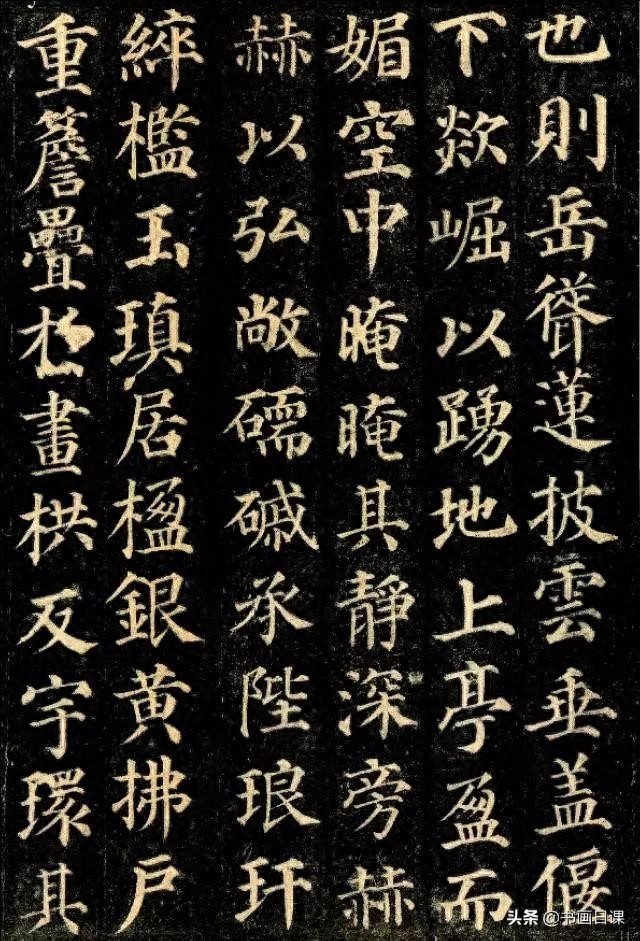 也則岳聳蓮披雲垂盖偃
下欻崛以踴地上亭盈而
媚空中晻晻其靜深旁赫
赫以弘敞礝磩承陛琅玕
綷檻玉瑱居楹銀黄拂户
重簷疊於畫栱反宇環其
头条 @书画日课